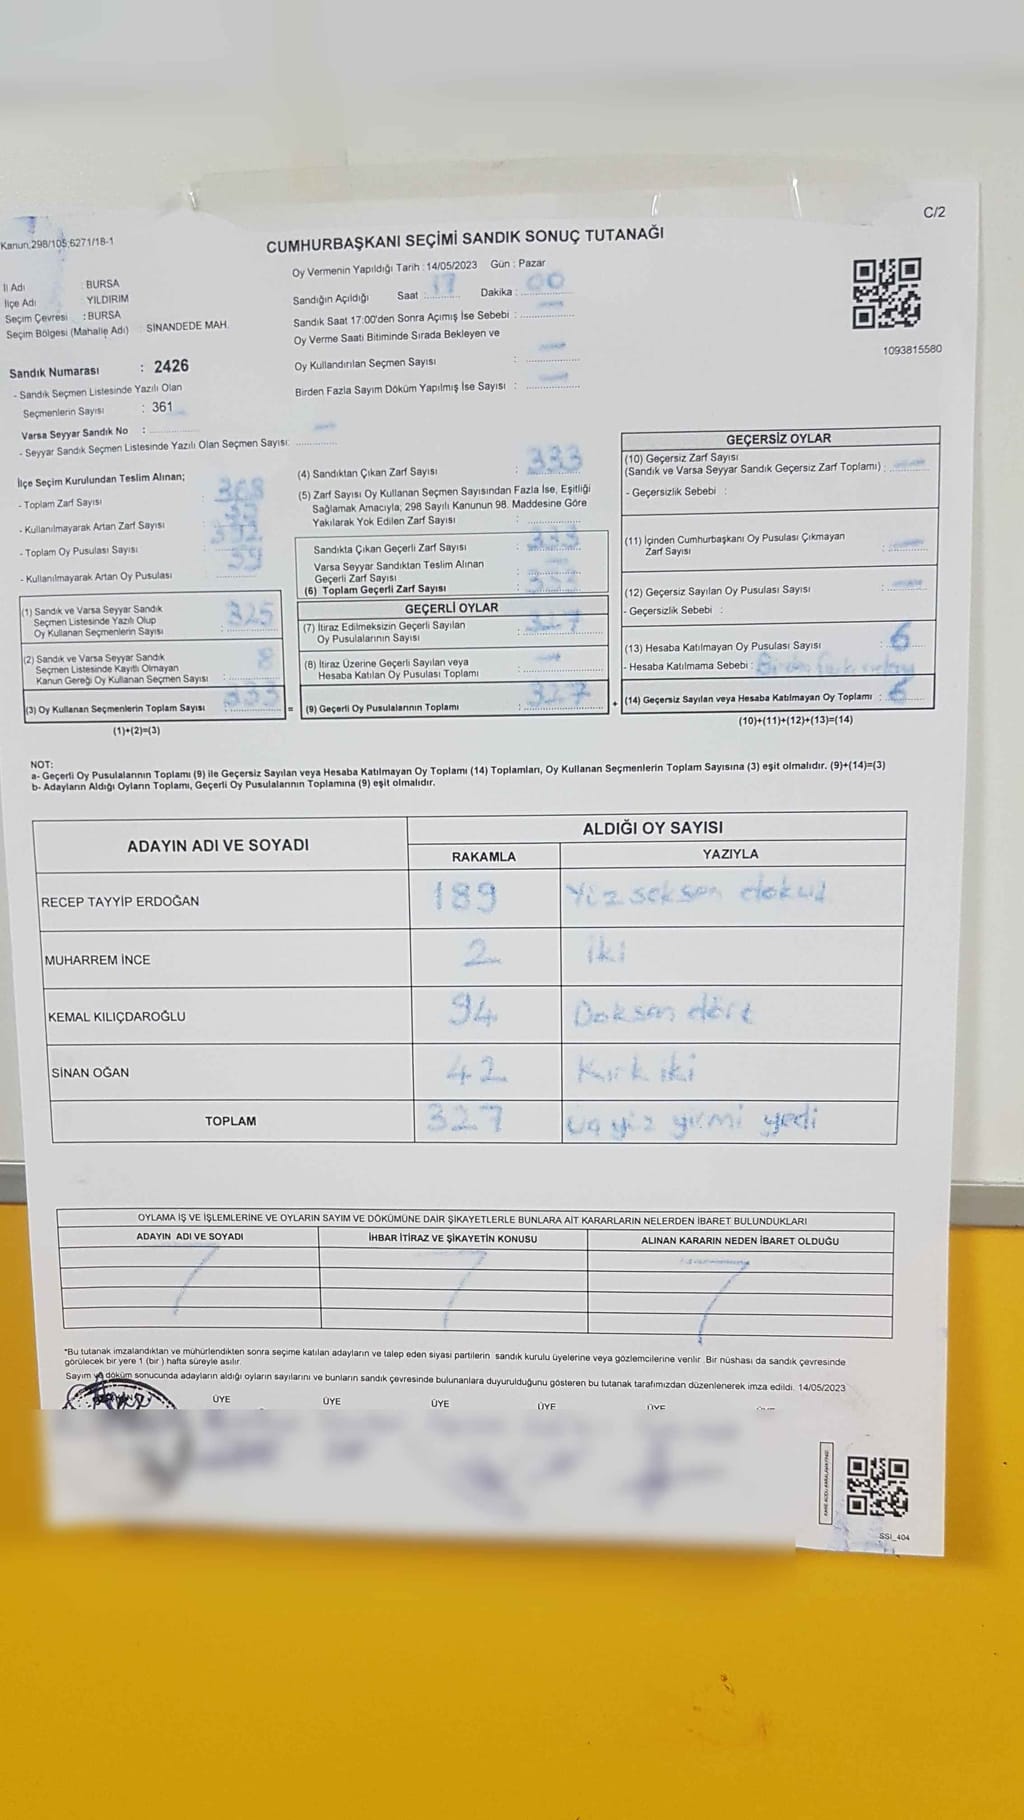 C/2
Kanun;298/105;6271/18-1
CUMHURBAŞKANI SEÇİMİ SANDIK SONUÇ TUTANAĞI
İl Adı : BURSA
İlçe Adı YILDIRIM
Seçim Çevresi : BURSA
Seçim Bölgesi (Mahalle Adı) : SİNANDEDE MAH.
Oy Vermenin Yapıldığı Tarih : 14/05/2023 Gün : Pazar
Sandığın Açıldığı Saat : 17 Dakika : 00
Sandık Saat 17:00'den Sonra Açımış İse Sebebi :
Oy Verme Saati Bitiminde Sırada Bekleyen ve
Oy Kullandırılan Seçmen Sayısı :
Birden Fazla Sayım Döküm Yapılmış İse Sayısı :
1093815580
Sandık Numarası : 2426
- Sandık Seçmen Listesinde Yazılı Olan
Seçmenlerin Sayısı : 361
Varsa Seyyar Sandık No :
- Seyyar Sandık Seçmen Listesinde Yazılı Olan Seçmen Sayısı:
İlçe Seçim Kurulundan Teslim Alınan;
- Toplam Zarf Sayısı : 368
- Kullanılmayarak Artan Zarf Sayısı
- Toplam Oy Pusulası Sayısı :
- Kullanılmayarak Artan Oy Pusulası :
(1) Sandık ve Varsa Seyyar Sandık
Seçmen Listesinde Yazılı Olup
Oy Kullanan Seçmenlerin Sayısı : 325
(2) Sandık ve Varsa Seyyar Sandık
Seçmen Listesinde Kayıtlı Olmayan
Kanun Gereği Oy Kullanan Seçmen Sayısı : 8
(3) Oy Kullanan Seçmenlerin Toplam Sayısı : 333 =
(1)+(2)=(3)
(4) Sandıktan Çıkan Zarf Sayısı : 333
(5) Zarf Sayısı Oy Kullanan Seçmen Sayısından Fazla İse, Eşitliği
Sağlamak Amacıyla; 298 Sayılı Kanunun 98. Maddesine Göre
Yakılarak Yok Edilen Zarf Sayısı :
Sandıkta Çıkan Geçerli Zarf Sayısı : 333
Varsa Seyyar Sandıktan Teslim Alınan
Geçerli Zarf Sayısı :
(6) Toplam Geçerli Zarf Sayısı : 333
GEÇERLİ OYLAR
(7) İtiraz Edilmeksizin Geçerli Sayılan
Oy Pusulalarının Sayısı : 327
(8) İtiraz Üzerine Geçerli Sayılan veya
Hesaba Katılan Oy Pusulası Toplamı :
(9) Geçerli Oy Pusulalarının Toplamı : 327 +
GEÇERSİZ OYLAR
(10) Geçersiz Zarf Sayısı
(Sandık ve Varsa Seyyar Sandık Geçersiz Zarf Toplamı) :
- Geçersizlik Sebebi :
(11) İçinden Cumhurbaşkanı Oy Pusulası Çıkmayan
Zarf Sayısı :
(12) Geçersiz Sayılan Oy Pusulası Sayısı :
- Geçersizlik Sebebi :
(13) Hesaba Katılmayan Oy Pusulası Sayısı : 6
- Hesaba Katılmama Sebebi :
(14) Geçersiz Sayılan veya Hesaba Katılmayan Oy Toplamı : 6
(10)+(11)+(12)+(13)=(14)
NOT:
a- Geçerli Oy Pusulalarının Toplamı (9) ile Geçersiz Sayılan veya Hesaba Katılmayan Oy Toplamı (14) Toplamları, Oy Kullanan Seçmenlerin Toplam Sayısına (3) eşit olmalıdır. (9)+(14)=(3)
b- Adayların Aldığı Oyların Toplamı, Geçerli Oy Pusulalarının Toplamına (9) eşit olmalıdır.
ADAYIN ADI VE SOYADI ALDIĞI OY SAYISI
RAKAMLA YAZIYLA
RECEP TAYYİP ERDOĞAN 189 Yüz seksen dokuz
MUHARREM İNCE 2 iki
KEMAL KILIÇDAROĞLU 94 Doksan dört
SİNAN OĞAN 42 Kırk iki
TOPLAM 327 üç yüz yirmi yedi
OYLAMA İŞ VE İŞLEMLERİNE VE OYLARIN SAYIM VE DÖKÜMÜNE DAİR ŞİKAYETLERLE BUNLARA AİT KARARLARIN NELERDEN İBARET BULUNDUKLARI
ADAYIN ADI VE SOYADI İHBAR İTİRAZ VE ŞİKAYETİN KONUSU ALINAN KARARIN NEDEN İBARET OLDUĞU
*Bu tutanak imzalandıktan ve mühürlendikten sonra seçime katılan adayların ve talep eden siyasi partilerin sandık kurulu üyelerine veya gözlemcilerine verilir. Bir nüshası da sandık çevresinde
görülecek bir yere 1 (bir) hafta süreyle asılır.
Sayım ve döküm sonucunda adayların aldığı oyların sayılarını ve bunların sandık çevresinde bulunanlara duyurulduğunu gösteren bu tutanak tarafımızdan düzenlenerek imza edildi. 14/05/2023
ÜYE ÜYE ÜYE ÜYE ÜYE
SSI_404